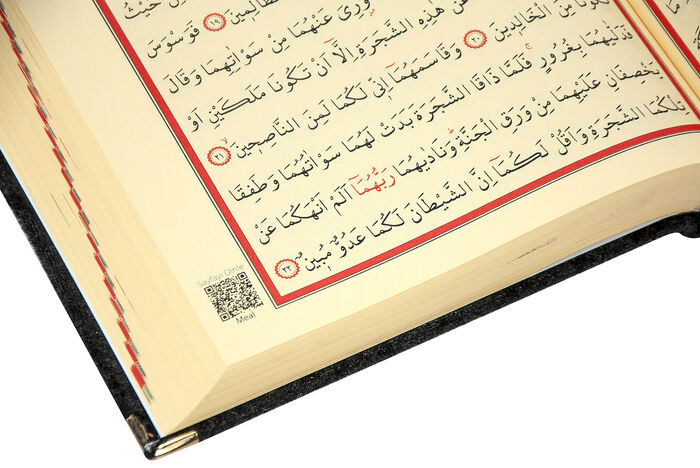 حَيْثُ
الظَّالِم۪ينَ ١٩ فَوَسْوَسَ
وُ۫رِيَ عَنْهُمَا مِنْ سَوْاٰتِهِمَا وَقَالَ
عَنْ هٰذِهِ الشَّجَرَةِ اِلَّٓا اَنْ تَكُونَا مَلَكَيْنِ اَوْ
تَكُونَا مِنَ الْخَالِد۪ينَ ٢٠ وَقَاسَمَهُمَٓا اِنّ۪ي لَكُمَا لَمِنَ النَّاصِح۪ينَ ٢١
فَدَلّٰيهُمَا بِغُرُورٍ فَلَمَّا ذَاقَا الشَّجَرَةَ بَدَتْ لَهُمَا سَوْاٰتُهُمَا وَطَفِقَا
يَخْصِفَانِ عَلَيْهِمَا مِنْ وَرَقِ الْجَنَّةِ وَنَادٰيهُمَا رَبُّهُمَٓا اَلَمْ اَنْهَكُمَا عَنْ
تِلْكُمَا الشَّجَرَةِ وَاَقُلْ لَكُمَٓا اِنَّ الشَّيْطَانَ لَكُمَا عَدُوٌّ مُب۪ينٌ ٢٢
Sayfayı Dinle
Meal